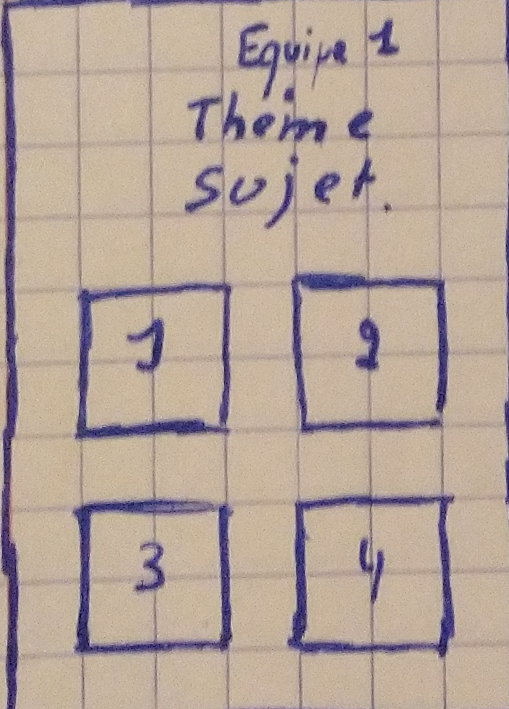 Equipe 1
Theme
Sujet.
1
2
3
4